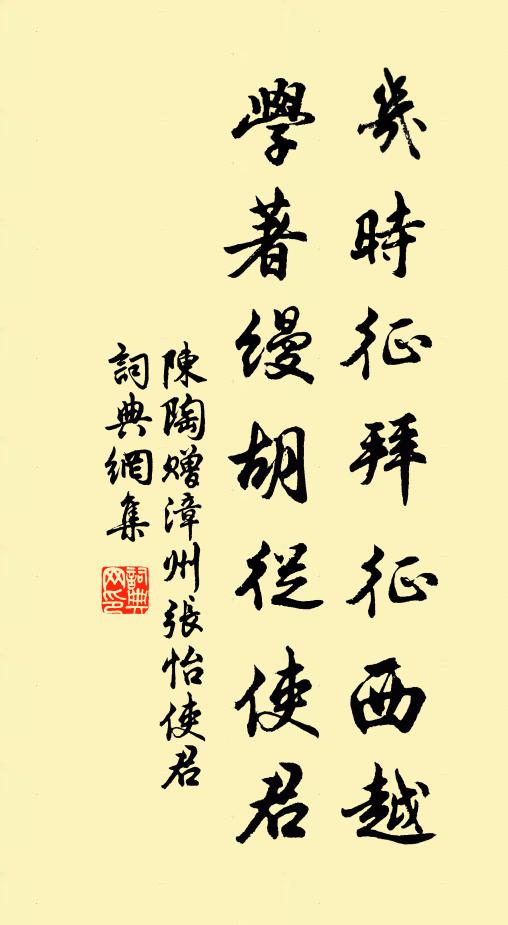 幾時征拜征西越
學著縵胡從使君
陳陶贈漳州張怡使君
詞典網集
詞典網印